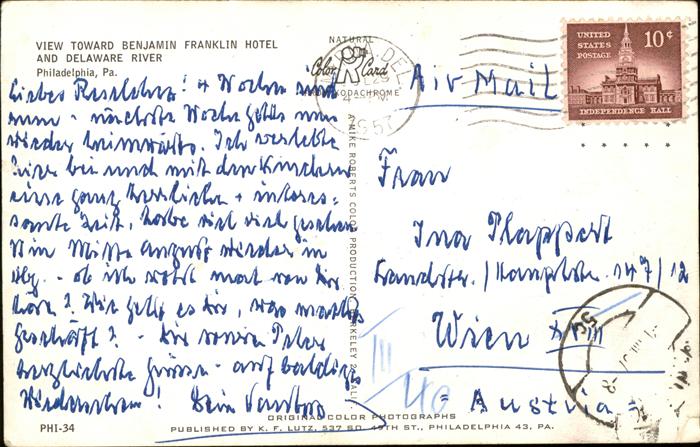 VIEW TOWARD BENJAMIN FRANKLIN HOTEL
AND DELAWARE RIVER
Philadelphia, Pa.
NATURAL
Color Card
KODACHROME
UNITED
STATES
POSTAGE
10¢
INDEPENDENCE HALL
Air Mail
Liebes 4 Wochen sind
nun - nächste Woche geht's nun
wieder heimwärts. Ich verlebte
hier bei und mit den Kindern
eine ganz herrliche + interes-
sante Zeit, habe viel viel gesehen
Mitte August wieder in
- ob ich wohl mal von Dir
höre? Wie geht es Dir, was macht
Geschäft? - Dir sowie Peter
herzlichste Grüsse - auf baldiges
Wiedersehen! Dein
Frau
Ina Plappert
147/12
Wien
III
Austria
A MIKE ROBERTS COLOR PRODUCTION BERKELEY 2
ORIGINAL COLOR PHOTOGRAPHS
PHI-34
PUBLISHED BY K. F. LUTZ, 537 SO. 49TH ST., PHILADELPHIA 43, PA.